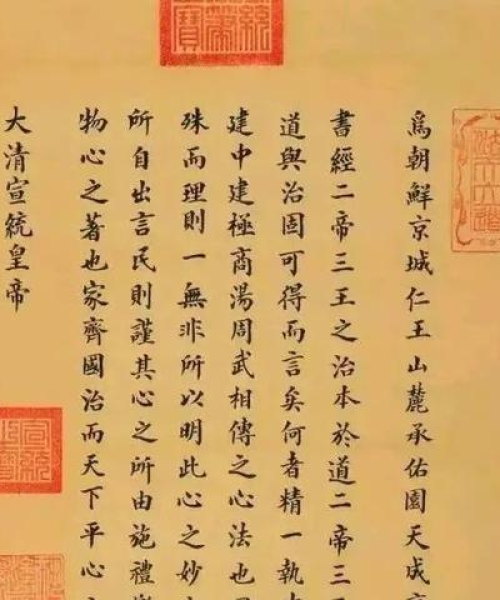 爲朝鮮京城仁王山麓承佑園天成
書經二帝三王之治本於道二帝三
道與治固可得而言矣何者精一執
建中建極商湯周武相傳之心法也
殊而理則一無非所以明此心之妙
所自出言民則謹其心之所由施禮
物心之著也家齊國治而天下平心
大清宣統皇帝